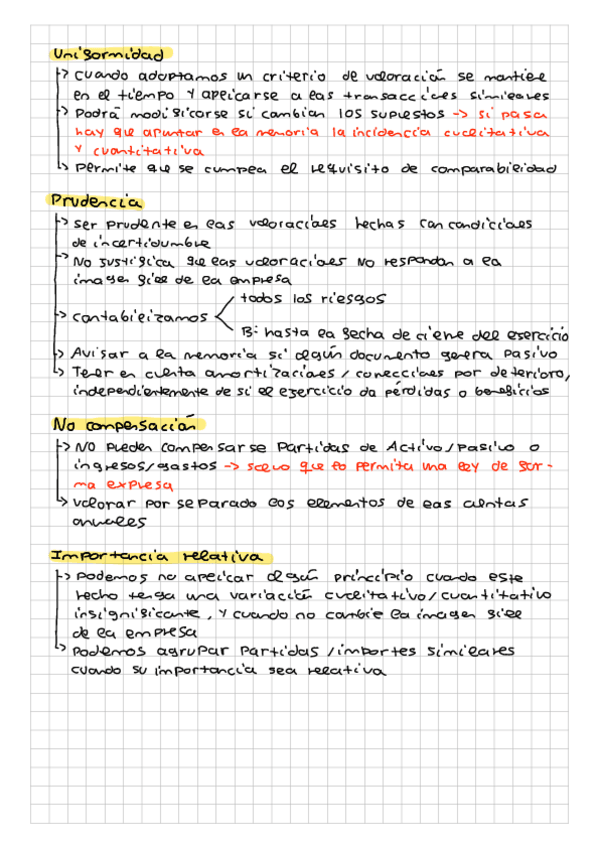 Uniformidad
-> Cuando adoptamos un criterio de valoración se mantiene
en el tiempo y aplicarse a las transacciones similares
-> Podrá modificarse si cambian los supuestos -> si pasa
hay que apuntar en la memoria la incidencia cualitativa
y cuantitativa
-> Permite que se cumpla el requisito de comparabilidad
Prudencia
-> Ser prudente en las valoraciones hechas con condiciones
de incertidumbre
-> No justifica que las valoraciones no respondan a la
imagen fiel de la empresa
todos los riesgos
-> Contabilizamos
Bº hasta la fecha de cierre del ejercicio
-> Avisar a la memoria si algún documento genera pasivo
-> Tener en cuenta amortizaciones / correcciones por deterioro,
independientemente de si el ejercicio da pérdidas o beneficios
No compensación
-> No pueden compensarse partidas de Activo/pasivo o
ingresos/gastos -> salvo que lo permita una ley de for-
ma expresa
-> Valorar por separado los elementos de las cuentas
anuales
Importancia relativa
-> Podemos no aplicar algún principio cuando este
hecho tenga una variación cualitativo/cuantitativo
insignificante, y cuando no cambie la imagen fiel
de la empresa
-> Podemos agrupar partidas /importes similares
cuando su importancia sea relativa